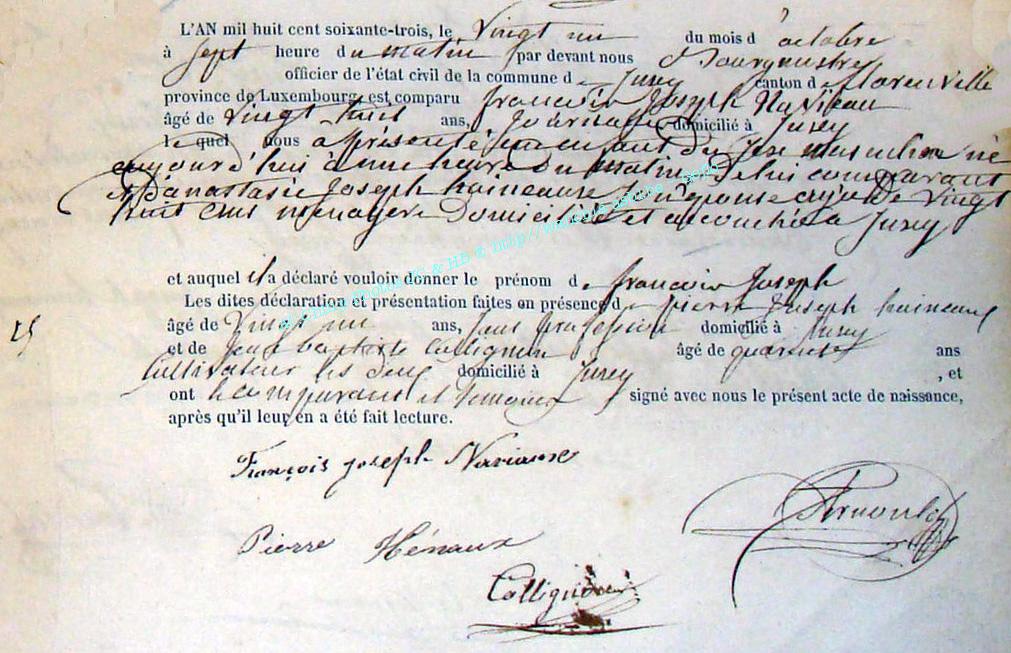 L'AN mil huit cent soixante-trois, le Vingt un du mois d'octobre
à Sept heure du matin par devant nous Bourgmestre
officier de l'état civil de la commune de Jusey canton de florenville
province de Luxembourg est comparu francois Joseph
âgé de Vingt huit ans, domicilié à Jusey
le quel nous a présenté un enfant du Sexe masculin né
aujourd'hui à une heure du matin, De lui comparant
et D'anastasie Joseph haineaux Son épouse agée De Vingt
huit ans menagere Domiciliée et accouchée a Jusey
et auquel il a déclaré vouloir donner le prénom de francois Joseph
Les dites déclaration et présentation faites en présence de pierre Joseph haineaux
âgé de Vingt un ans, Sans profession domicilié à Jusey
et de Jean baptiste Collignon âgé de quarante ans
Cultivateur les deux domicilié à Jusey , et
ont le comparant et temoins signé avec nous le présent acte de naissance,
après qu'il leur en a été fait lecture.
François Joseph
Pierre Hénaux
Collignon
Arnould